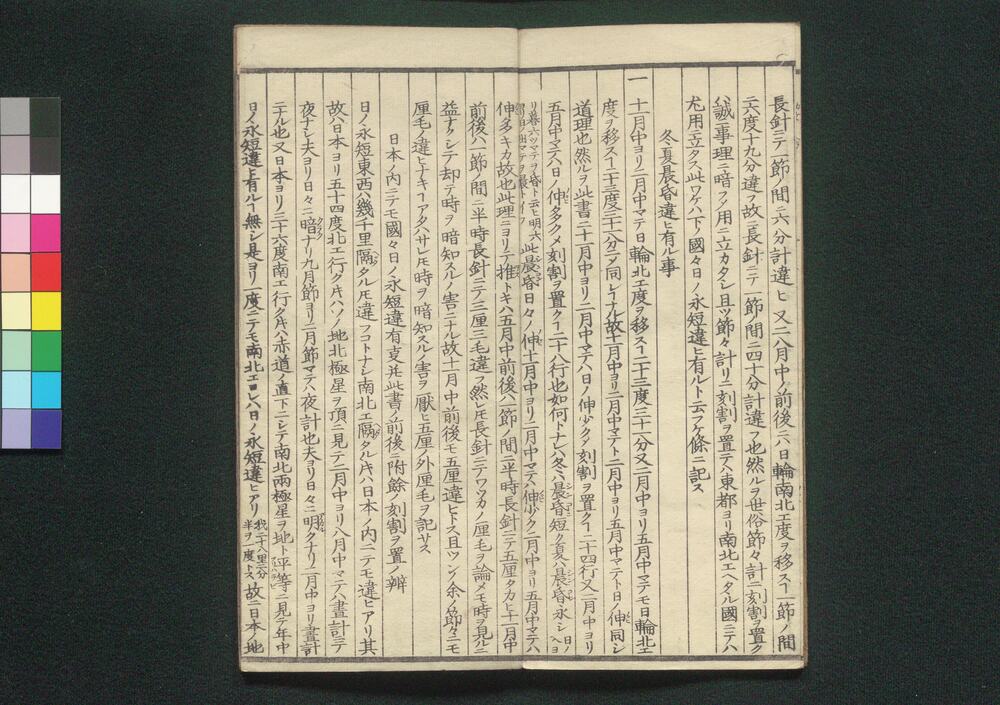 長針ニテ一節ノ間ニ六分計違ヒ又二八月中ノ前後ニハ日輪南北エ度ヲ移スヿ一節ノ間
ニ六度十九分違フ故ニ長針ニテ一節ノ間ニ四十分計違フ也然ルヲ世俗節々計ニ刻割ヲ置ク
ハ誠事理ニ暗フメ用ニ立カタシ且ツ節々計リニ刻割ヲ置テハ東都ヨリ南北エヘタル國ニテハ
尤用立タス此ワケハ下國々日ノ永短違ヒ有ルト云フケ條ニ記ス
冬夏晨昏違ヒ有ル事
一 十一月中ヨリ二月中マテ日輪北エ度ヲ移スヿ二十三度三十八分又二月中ヨリ五月中マテモ日輪北エ
度ヲ移スヿ二十三度三十八分ニメ同シナル故十一月中ヨリ二月中マテト二月中ヨリ五月中マテト日ノ伸同シ
道理也然ルヲ此書ニ十一月中ヨリ二月中マテハ日ノ伸少クメ刻割ヲ置クヿ二十四行又二月中ヨリ
五月中マテハ日ノ伸多クメ刻割ヲ置クヿ二十八行也如何トナレハ冬ハ晨昏短ク夏ハ晨昏永シ日ノ入ヨ
リ暮六ツマテヲ昏ト云ヒ明六ツヨリ日出マテヲ晨トイフ此晨昏日々ノ伸十一月中ヨリ二月中マテハ伸少ク二月中ヨリ五月中マテハ
伸多キカ故也此理ニヨリテ推トキハ五月中前後ハ一節ノ間ニ半時長針ニテ五厘タカヒ十一月中
前後ハ一節ノ間ニ半時長針ニテ三厘三毛違フ然レモ長針ニテワツカノ厘毛ヲ論メモ時ヲ見ルニ
益ナクシテ却テ時ヲ暗知スルノ害ニナル故十一月中前後モ五厘違ヒトス且ツ余ノ節々ニモ
厘毛ノ違ヒナキヿアタハサレモ時ヲ暗知スルノ害ヲ厭ヒ五厘ノ外厘毛ヲ記サス
日本ノ内ニテモ國々日ノ永短違有支并此書ノ前後ニ附餘ノ刻割ヲ置ノ辨
日ノ永短東西ハ幾千里隔タルモ違フコトナシ南北エ隔タルキハ日本ノ内ニテモ違ヒアリ其
故ハ日本ヨリ五十四度北エ行タルキハソノ地北極星ヲ頂ニ見テ二月中ヨリ八月中マテハ晝計ニテ
夜ナシ夫ヨリ日々ニ暗ナリ九月節ヨリ二月節マテハ夜計也夫ヨリ日々ニ明クナリ二月中ヨリ晝計
ニナル也又日本ヨリ三十六度南エ行タルキハ赤道ノ直下ニシテ南北兩極星ヲ地ト平等ニ見テ年中
日ノ永短違ヒ有ルヿ無シ是ヨリ一度ニテモ南北エヨレハ日ノ永短違ヒアリ我二十八里六分半ヲ一度トス故ニ日本ノ地